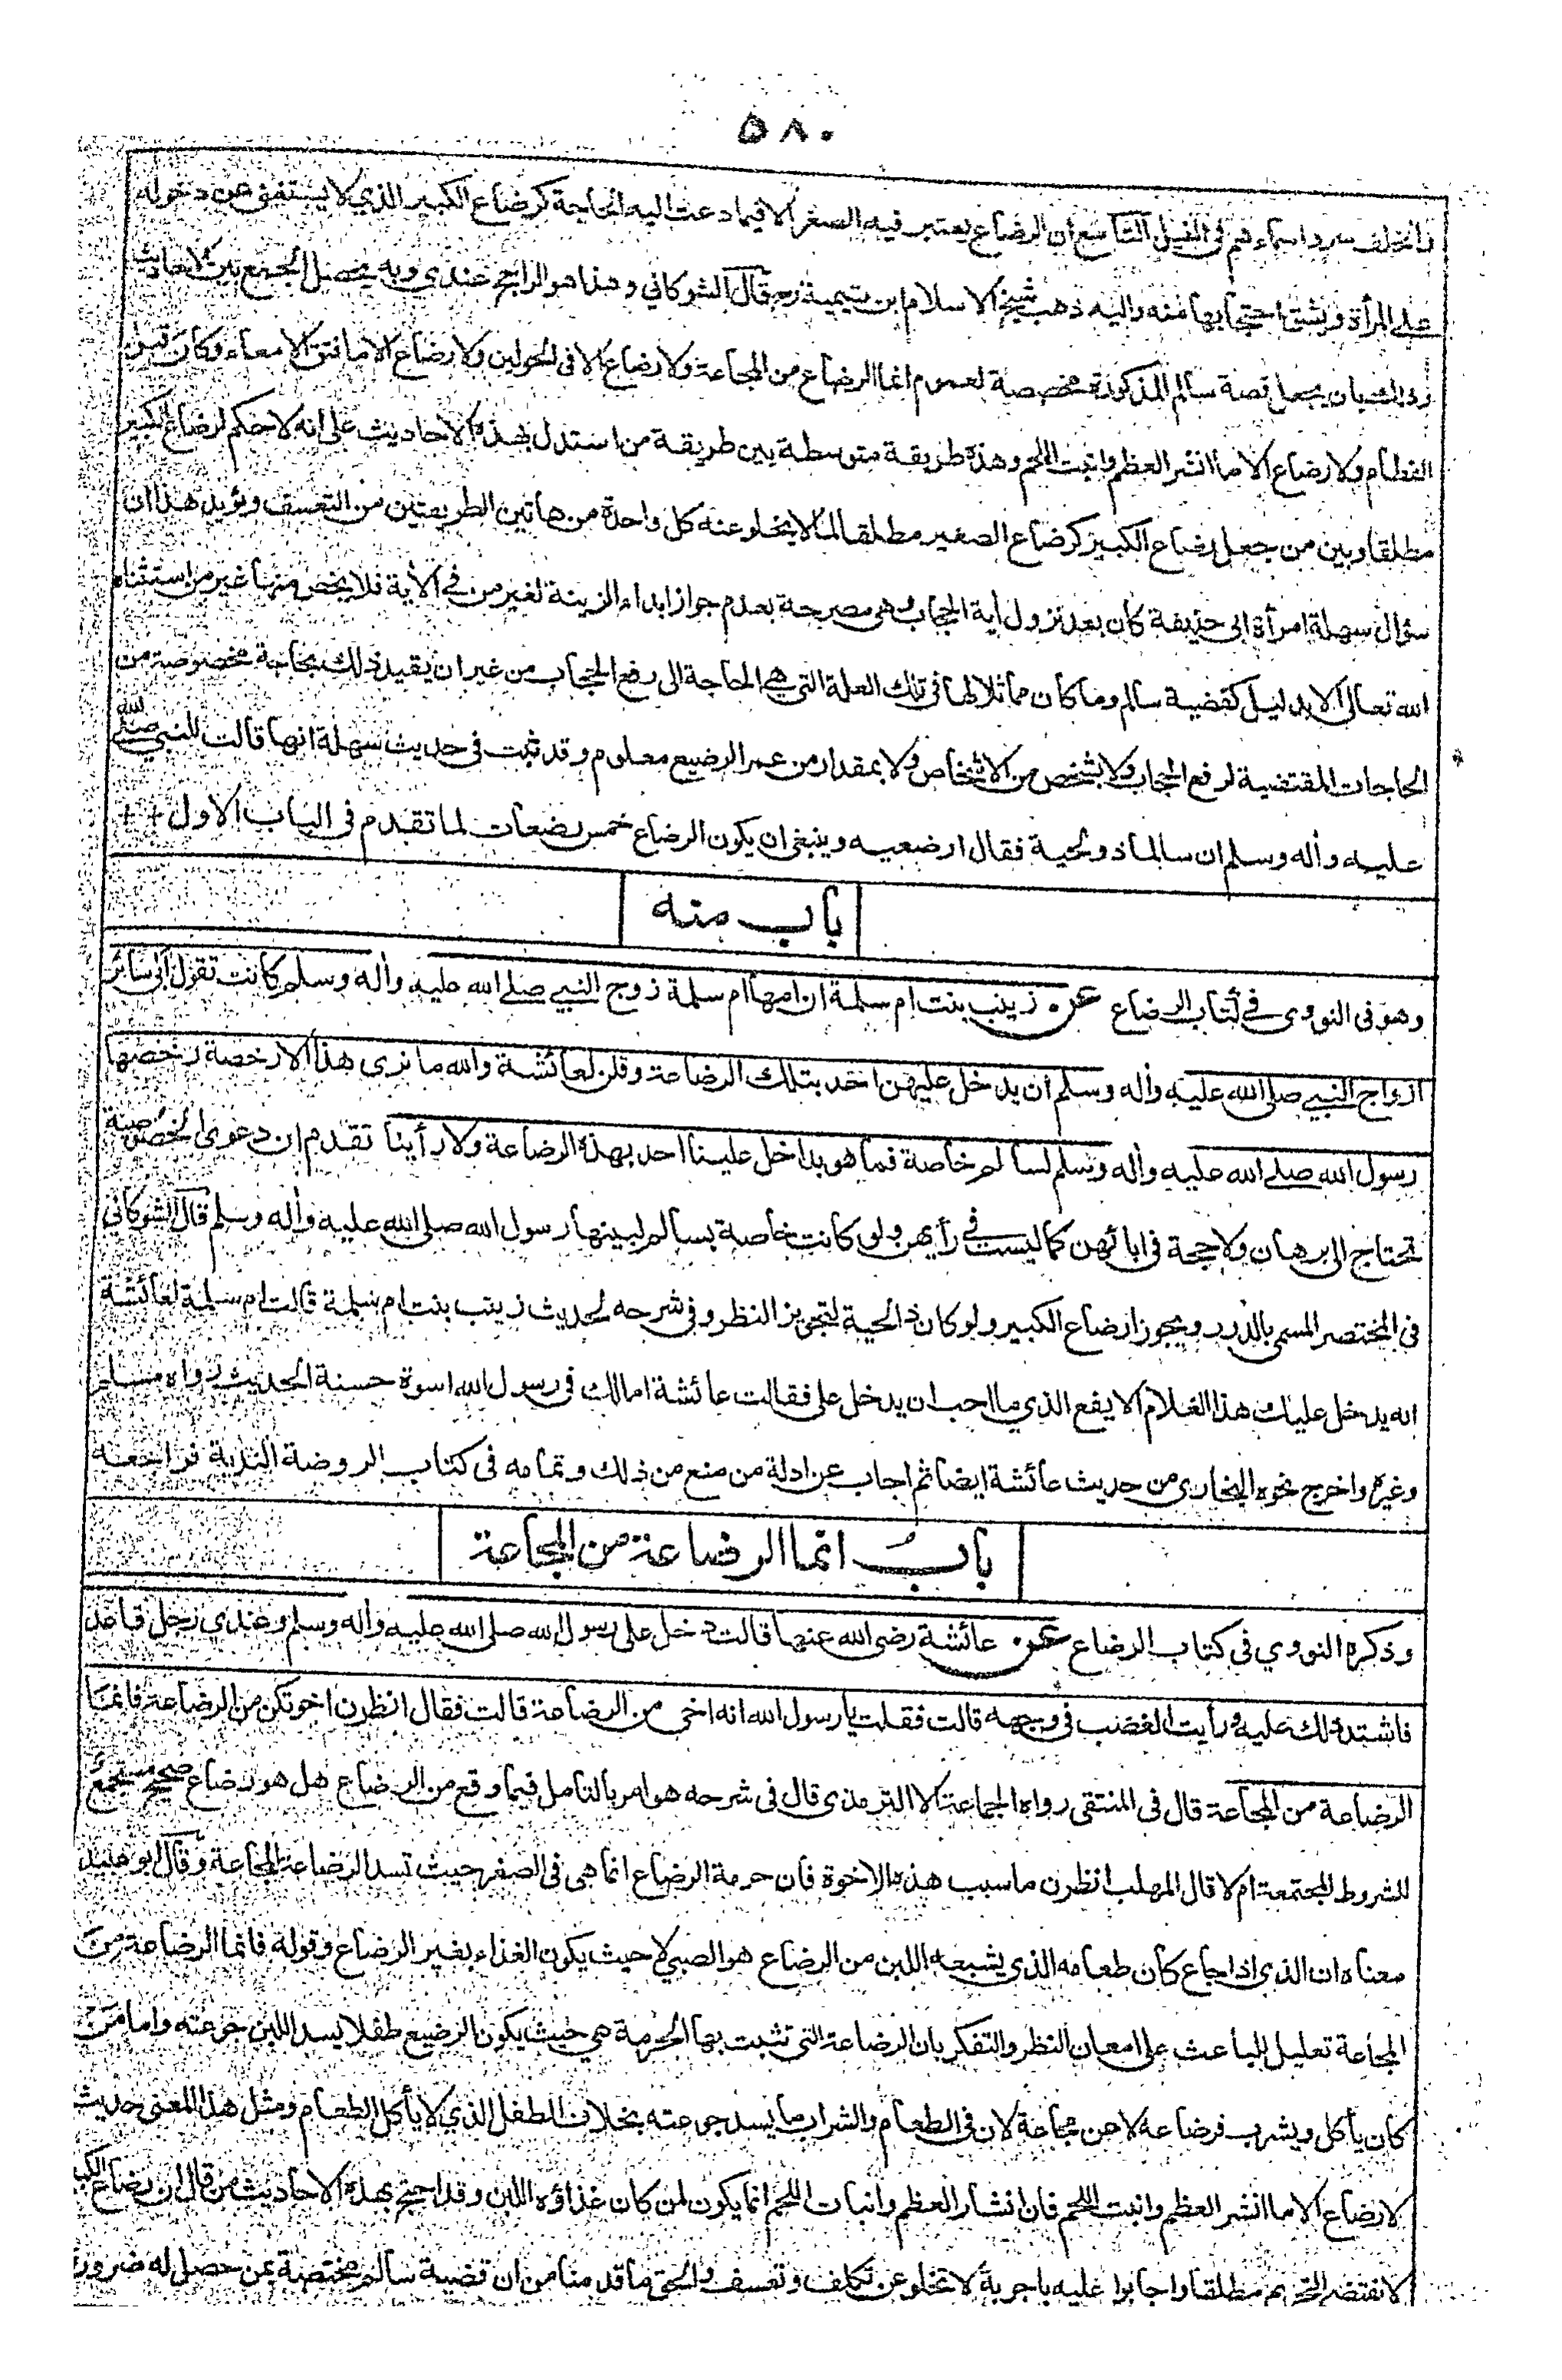 ٥٨٠
فالخلف سرد اسماءهم فى النيل التاسع ان الرضاع يعتبر فيه الصغر الا فيما دعت اليه الحاجة كرضاع الكبير الذي لا يستغنى عن دخوله
على المرأة ويشق احتجابها منه واليه ذهب شيخ الاسلام ابن تيمية رح قال الشوكاني وهذا هو الراجح عندي وبه يحصل الجمع بين الاحاديث
وذلك بان يجعل قصة سالم المذكورة مخصصة لعموم انما الرضاع من المجاعة ولا رضاع الا فى الحولين ولا رضاع الا ما فتق الامعاء وكان قبل
الفطام ولا رضاع الا ما انشر العظم وانبت اللحم وهذه طريقة متوسطة بين طريقة من استدل بهذه الاحاديث على انه لا حكم لرضاع الكبير
مطلقا وبين من جعل رضاع الكبير كرضاع الصغير مطلقا لما لا يخلو عنه كل واحدة من هاتين الطريقتين من التعسف ويؤيد هذا ان
سؤال سهلة امرأة ابى حذيفة كان بعد نزول أية الحجاب وهى مصرحة بعدم جواز ابداء الزينة لغير من في الأية فلا يخص منها غير من استثناه
الله تعالى الا بدليل كقضية سالم وما كان مماثلا لها فى تلك العلة التي هي الحاجة الى رفع الحجاب من غير ان يقيد ذلك بحاجة مخصوصة من
الحاجات المقتضية لرفع الحجاب ولا بشخص من الاشخاص ولا بمقدار من عمر الرضيع معلوم وقد ثبت فى حديث سهلة انها قالت للنبي صلى الله
عليه وأله وسلم ان سالما ذو لحية فقال ارضعيه وينبغى ان يكون الرضاع خمس رضعات لما تقدم فى الباب الاول + +
باب منه
وهو فى النووى في كتاب الرضاع عن زينب بنت ام سلمة ان امها ام سلمة زوج النبي صلى الله عليه وأله وسلم كانت تقول ابى سائر
ازواج النبي صلى الله عليه وأله وسلم ان يدخل عليهن احد بتلك الرضاعة وقلن لعائشة والله ما نرى هذا الا رخصة رخصها
رسول الله صلى الله عليه وأله وسلم لسالم خاصة فما هو بداخل علينا احد بهذه الرضاعة ولا رأينا تقدم ان دعوى الخصوصية
تحتاج الى برهان ولا حجة فى ابائهن كما ليست في رأيهن ولو كانت خاصة بسالم لبينها رسول الله صلى الله عليه وأله وسلم قال الشوكانى
فى المختصر المسمى بالدرر ويجوز ارضاع الكبير ولو كان ذا لحية لتجويز النظر وفى شرحه لحديث زينب بنت ام سلمة قالت ام سلمة لعائشة
انه يدخل عليك هذا الغلام الايفع الذي ما احب ان يدخل على فقالت عائشة امالك فى رسول الله اسوة حسنة الحديث رواه مسلم
وغيره واخرج نحوه البخارى من حديث عائشة ايضا ثم اجاب عن ادلة من منع من ذلك وتمامه فى كتاب الروضة الندية فراجعه
باب انما الرضاعة من المجاعة
وذكره النووي فى كتاب الرضاع عن عائشة رضى الله عنها قالت دخل على رسول الله صلى الله عليه وأله وسلم وعندي رجل قاعد
فاشتد ذلك عليه ورأيت الغضب فى وجهه قالت فقلت يا رسول الله انه اخى من الرضاعة قالت فقال انظرن اخوتكن من الرضاعة فانما
الرضاعة من المجاعة قال فى المنتقى رواه الجماعة الا الترمذى قال فى شرحه هو امر بالتامل فيما وقع من الرضاع هل هو رضاع صحيح مستجمع
للشروط المجتمعة ام لا قال المهلب انظرن ما سبب هذه الاخوة فان حرمة الرضاع انما هى فى الصغر حيث تسد الرضاعة المجاعة وقال ابو عبيد
معناه ان الذى اذا جاع كان طعامه الذي يشبعه اللبن من الرضاع هو الصبي لا حيث يكون الغذاء بغير الرضاع وقوله فانما الرضاعة من
المجاعة تعليل للباعث على امعان النظر والتفكر بان الرضاعة التى تثبت بها الحرمة هي حيث يكون الرضيع طفلا يسد اللبن جوعته واما من
كان يأكل ويشرب فرضاعه لا عن مجاعة لان فى الطعام والشراب ما يسد جوعته بخلاف الطفل الذي لا يأكل الطعام ومثل هذا المعنى حديث
لا رضاع الا ما انشر العظم وانبت اللحم فان انشار العظم وانبات اللحم انما يكون لمن كان غذاؤه اللبن وقد احتج بهذه الاحاديث من قال ان رضاع الكبير
لا يقتضى التحريم مطلقا واجابوا عليه باجوبة لا تخلو عن تكلف وتعسف والحق ما قدمنا من ان قضية سالم مختصة بمن حصل له ضرورة